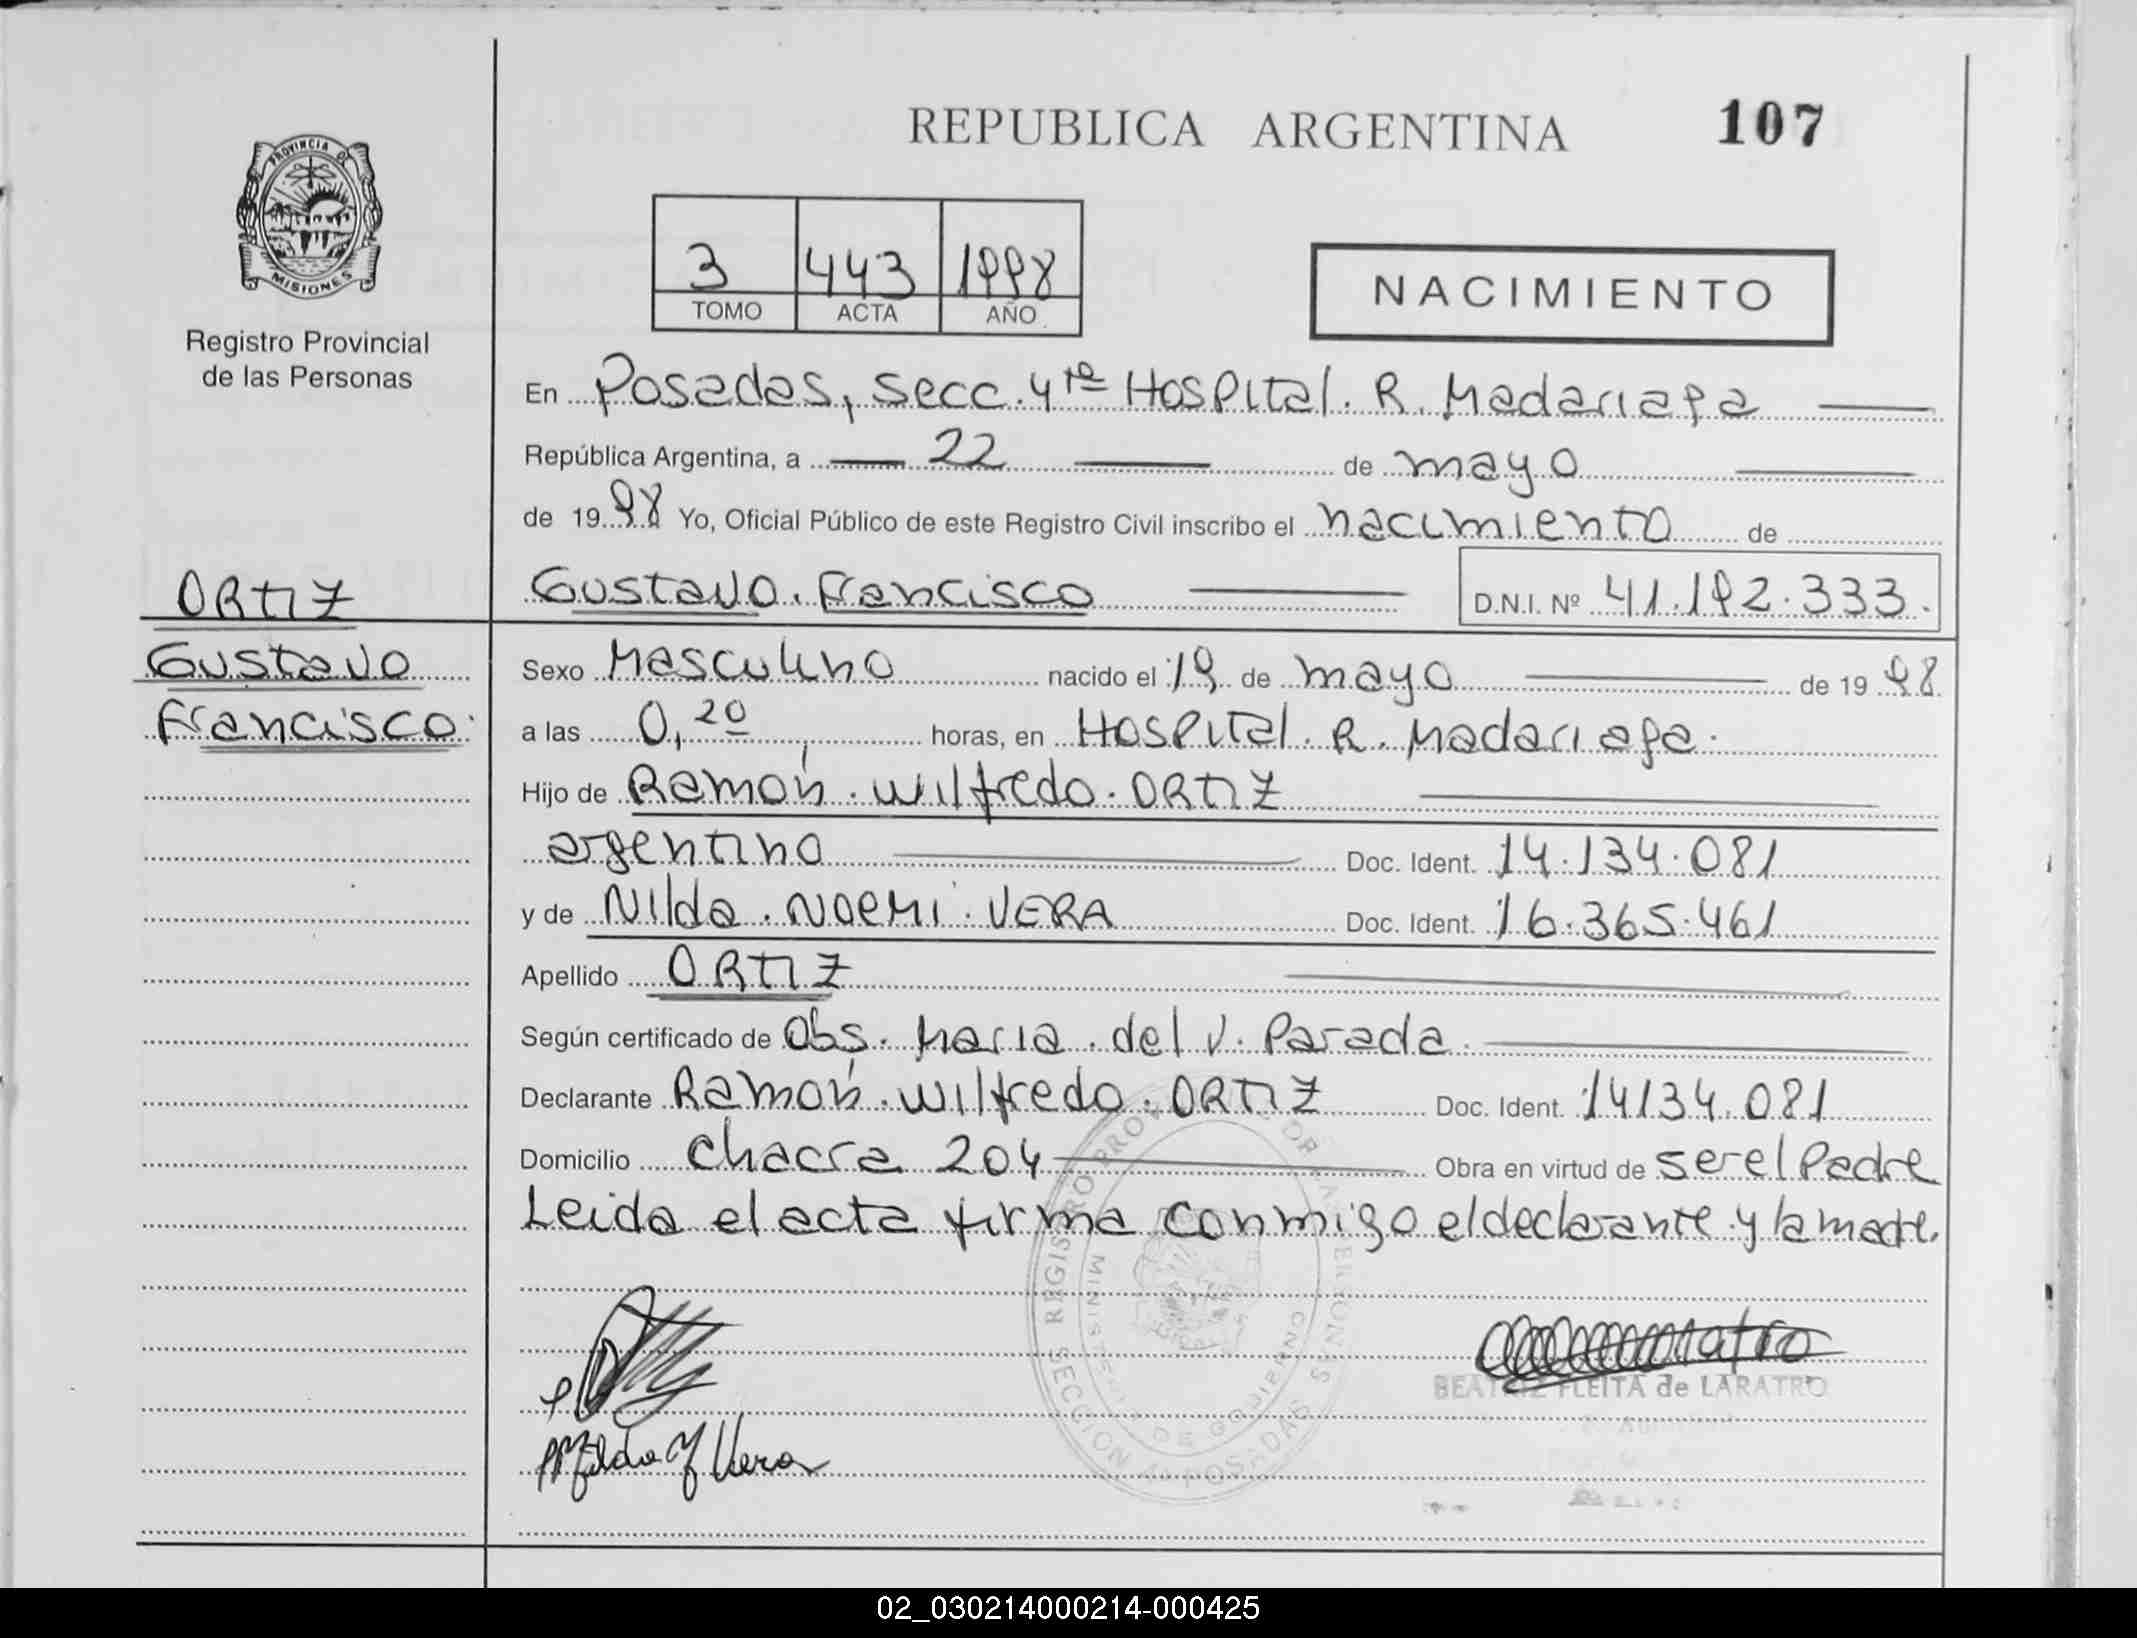 REPUBLICA ARGENTINA 107
PROVINCIA DE
MISIONES
Registro Provincial
de las Personas
3 443 1998
TOMO ACTA AÑO
NACIMIENTO
En Posadas, Secc. 4ta Hospital. R. Madariaga
República Argentina, a 22 de mayo
de 1998 Yo, Oficial Público de este Registro Civil inscribo el nacimiento de
Gustavo. Francisco D.N.I. Nº 41.192.333.
ORTIZ
Gustavo
Francisco.
Sexo Masculino nacido el 19 de mayo de 1998.
a las 0,20 horas, en Hospital. R. Madariaga.
Hijo de Ramón. Wilfredo. ORTIZ
argentino Doc. Ident. 14.134.081
y de Nilda. NOEMI. VERA Doc. Ident. 16.365.461
Apellido ORTIZ
Según certificado de Obs. Maria. del V. Parada.
Declarante Ramón. Wilfredo. ORTIZ Doc. Ident. 14134.081
Domicilio Chacra 204 Obra en virtud de ser el Padre
Leida el acta firma conmigo el declarante y la madre.
BEATRIZ FLEITA de LARATRO
Nilda N Vera
SECCION 4ª POSADAS
MINISTERIO DE GOBIERNO
02_030214000214-000425